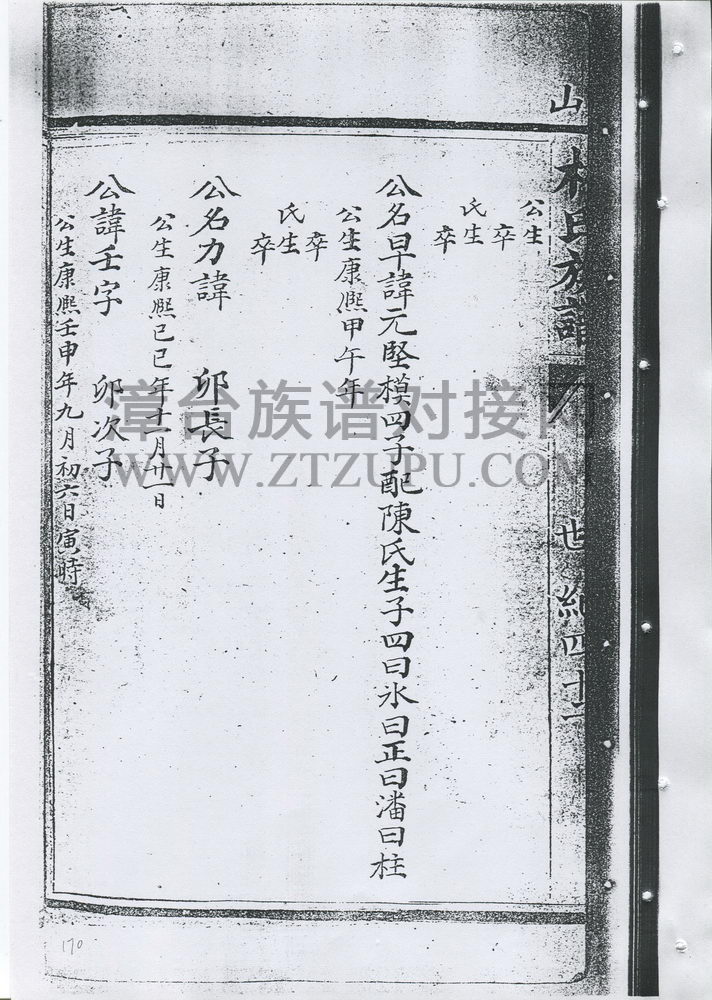 山
林氏族譜
世紀四十一
公生
卒
氏生
卒
公名旱諱元堅模四子配陳氏生子四曰氷曰正曰潘曰柱
公生康熙甲午年
卒
氏生
卒
公名力諱 卯長子
公生康熙己巳年十一月廿一日
公諱壬字 卯次子
公生康熙壬申年九月初六日寅時
漳台族谱对接网
WWW.ZTZUPU.COM
170